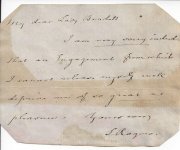 My dear Lady
I am very sorry indeed
that an Engagement from which
I cannot release myself will
deprive me of so great a
pleasure. Yours very